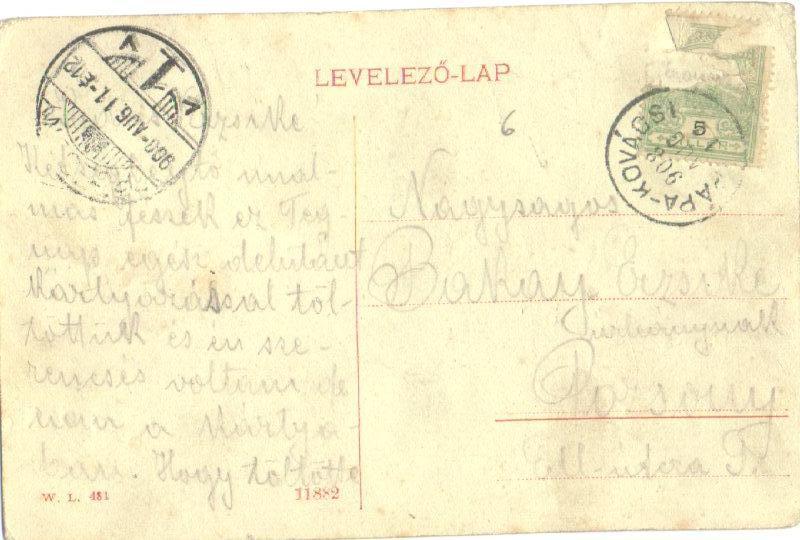 LEVELEZŐ-LAP
6
5
PÁPA-KOVÁCSI
908
AUG. 11
Erzsike
unal-
mas fészek ez Teg-
nap egész délutánt
kártyázással töl-
töttük és én sze-
rencsés voltam de
csak a kártyá-
ban. Hogy töltötte
Nagyságos
Bakay Erzsike
úrhölgynek
Pozsony
utcza
W. L. 481
11882